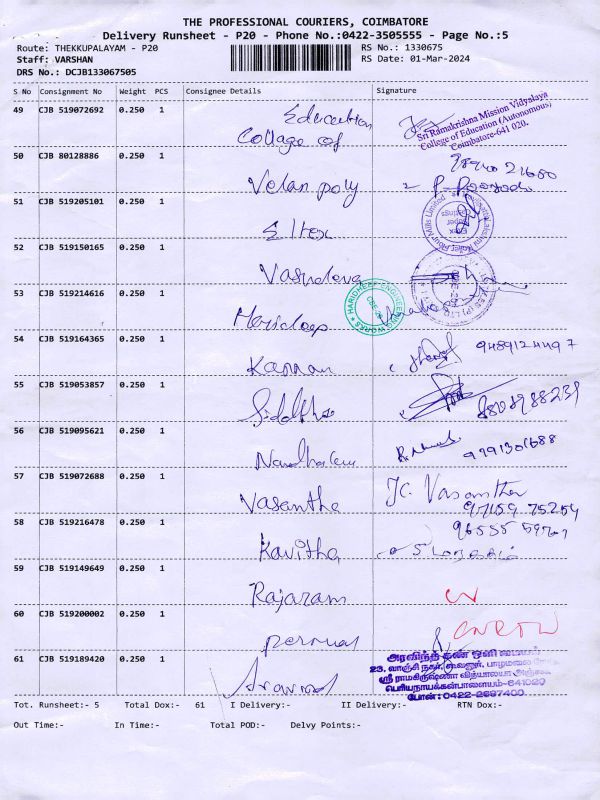 THE PROFESSIONAL COURIERS, COIMBATORE
Delivery Runsheet - P20 - Phone No.:0422-3505555 - Page No.:5
Route: THEKKUPALAYAM - P20
RS No.: 1330675
Staff: VARSHAN
RS Date: 01-Mar-2024
DRS No.: DCJB133067505
S No Consignment No Weight PCS Consignee Details Signature
49 CJB 519072692 0.250 1 Education
College of
Sri Ramakrishna Mission Vidyalaya
College of Education (Autonomous)
Coimbatore-641 020.
50 CJB 80128886 0.250 1
Velan poly
51 CJB 519205101 0.250 1
Eltex
52 CJB 519150165 0.250 1
Vasudeva
53 CJB 519214616 0.250 1
Harideep
HARIDHEEP ENGINEERING WORKS
54 CJB 519164365 0.250 1
Kannan 9489124497
55 CJB 519053857 0.250 1
Siddtha
56 CJB 519095621 0.250 1
57 CJB 519072688 0.250 1
Vasantha K. Vasantha
97159 75254
58 CJB 519216478 0.250 1
Kavitha
59 CJB 519149649 0.250 1
Rajaram
60 CJB 519200002 0.250 1
perumal
61 CJB 519189420 0.250 1
Aravind
அரவிந்த் கண் ஒளி மையம்
23, வாஞ்சி நகர்,
ஸ்ரீ ராமகிருஷ்ணா வித்யாலயா அஞ்சல்
பெரியநாயக்கன்பாளையம்-641020
போன் : 0422-2697400
Tot. Runsheet:- 5 Total Dox:- 61 I Delivery:- II Delivery:- RTN Dox:-
Out Time:- In Time:- Total POD:- Delvy Points:-